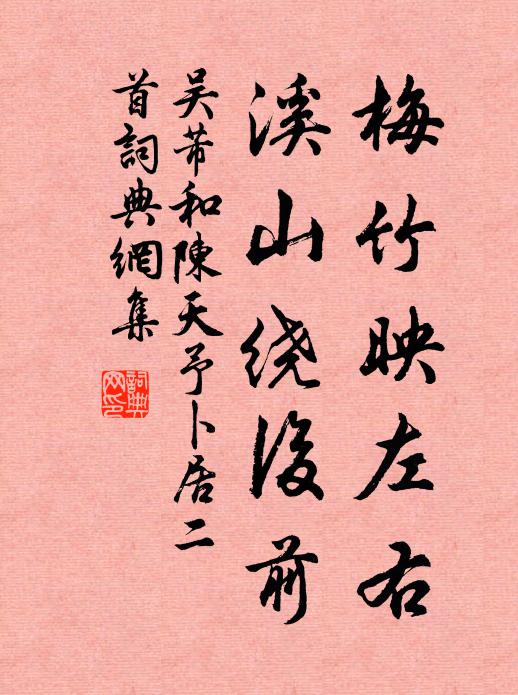 梅竹映左右
溪山绕後前
吴芾和陳天予卜居二
首詞典網集
詞典網印